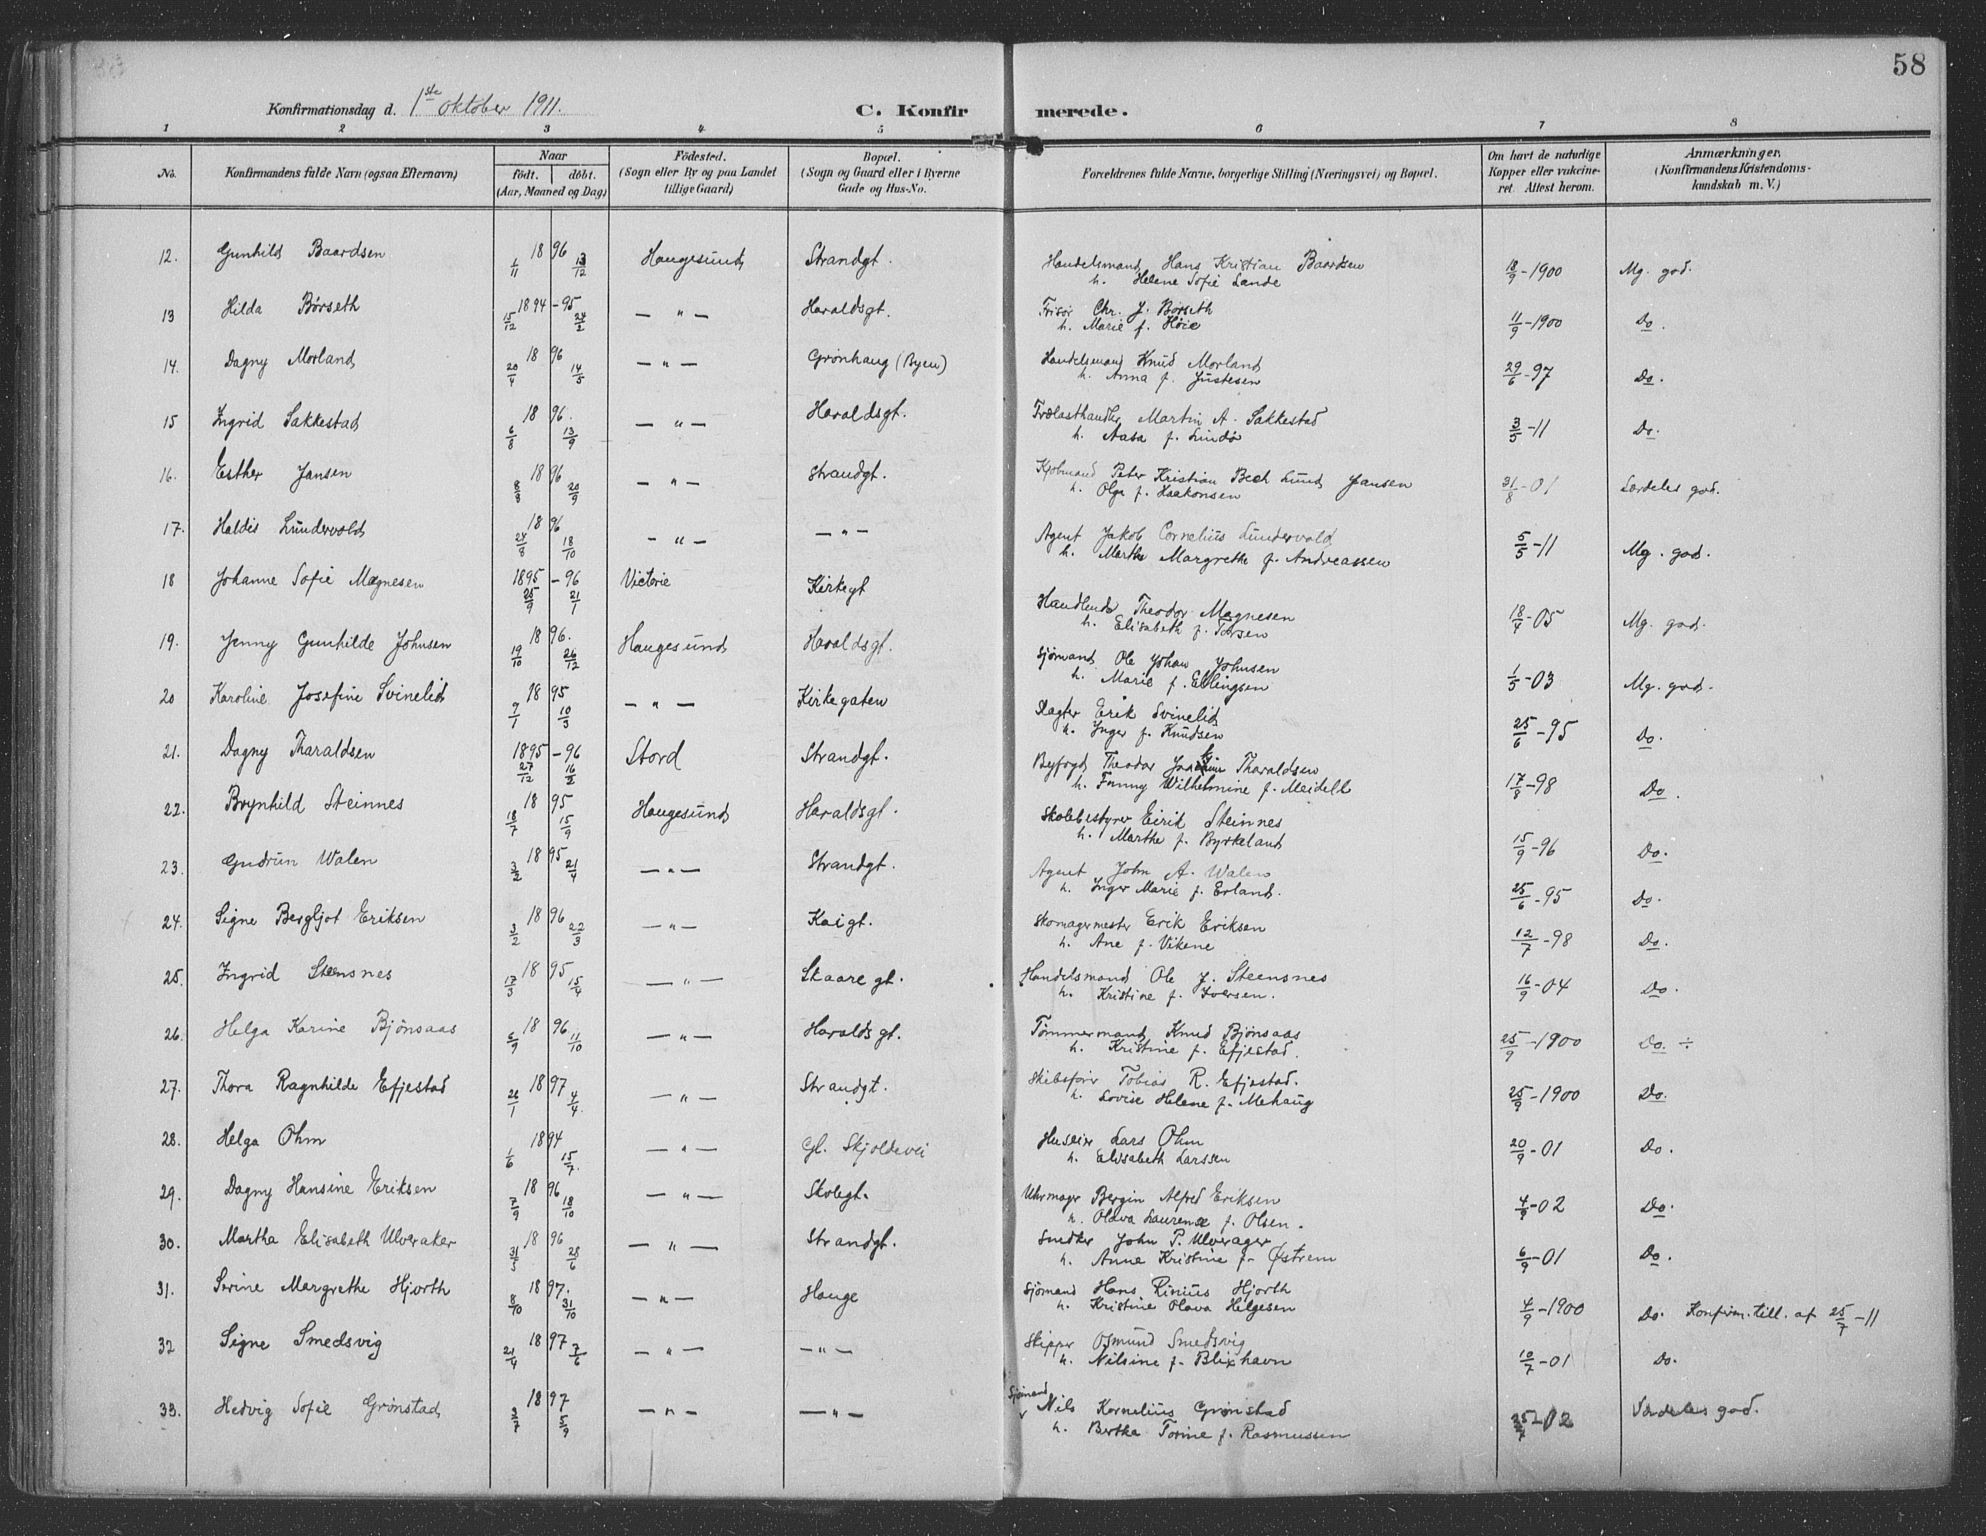 58
Konfirmationsdag d. 1ste oktober 1911. C. Konfirmerede.
1 2 3 4 5 6 7 8
No. Konfirmandens fulde Navn (ogsaa Efternavn) Naar födt. döbt. (Aar, Maaned og Dag) Födested. (Sogn eller By og paa Landet tillige Gaard) Bopæl. (Sogn og Gaard eller i Byerne Gade og Hus-No. Forældrenes fulde Navne, borgerlige Stilling (Næringsvei) og Bopæl. Om havt de naturlige Kopper eller vakcineret. Attest herom. Anmærkninger. (Konfirmandens Kristendomskundskab m. V.)
12. Gunhild Baardsen 1896 1/11 13/12 Haugesund Strandgt. Handelsmand Hans Kristian Baardsen 18/9-1900 Mg. god.
h. Helene Sofie Lande
13 Hilda Børseth 1894-95 15/12 24/2 — " — Haraldsgt. Frisør Chr. J. Børseth 11/9-1900 Do.
h. Marie f. Høie
14. Dagny Morland 1896 20/4 14/5 — " — Grønhaug (Byen) Handelsmand Knud Morland 29/6-97 Do.
h. Anna f. Justesen
15 Ingrid Sakkestad 1896. 6/8 13/9 — " — Haraldsgt. Trælasthandler Martin A. Sakkestad 3/5-11 Do.
h. Aasa f. Lindø
16. Esther Jansen 1896 8/8 20/9 — " — Strandgt. Kjøbmand Peter Kristian Bech Lund Jansen 31/8-01 Særdeles god.
h. Olga f. Haakonsen
17. Haldis Lundervold 1896 24/8 18/10 — " — — " — Agent Jakob Cornelius Lundervold 5/5-11 Mg. god.
h. Marthe Margrethe f. Andreassen
18 Johanne Sofie Magnesen 1895-96 25/9 21/1 Victorie Kirkegt Handlende Theodor Magnesen 18/4-05 Mg. god.
h. Elisabeth f. Torsen
19. Jenny Gunhilde Johnsen 1896. 19/10 26/12 Haugesund Haraldsgt. Sjømand Ole Johan Johnsen 1/5-03 Mg. god.
h. Marie f. Ellingsen
20 Karoline Josefine Svinelid 1895 9/1 10/3 — " — Kirkegaten Slagter Erik Svinelid 25/6-95 Do.
h. Inger f. Knudsen
21. Dagny Tharaldsen 1895-96 27/12 16/2 Stord Strandgt. Byfogd Theodor Tharaldsen 17/8-98 Do.
h. Fanny Wilhelmine f. Meidell
22. Brynhild Steinnes 1895 18/7 15/9 Haugesund Haraldsgt. Skolebestyrer Eirik Steinnes 15/9-96 Do.
h. Marthe f. Byrkeland
23. Gudrun Walen 1895 3/2 21/4 — " — Strandgt. Agent John A. Walen 25/6-95 Do.
h. Inger Marie f. Erland.
24. Signe Bergljot Eriksen 1896 3/2 22/3 — " — Kaigt. Skomagermester Erik Eriksen 12/7-98 Do.
h. Ane f. Vikene
25. Ingrid Steensnes 1895 17/3 15/4 — " — Skaaregt. Handelsmand Ole J. Steensnes 16/9-04 Do.
h. Kristine f. Iversen.
26. Helga Karine Bjønsaas 1896 6/9 11/10 — " — Haraldsgt. Tømmermand Knud Bjønsaas 25/9-1900 Do. ÷
h. Kristine f. Efjestad.
27. Thora Ragnhilde Efjestad 1897 26/1 4/4 — " — Strandgt. Skibsfører Tobias R. Efjestad. 25/9-1900 Do.
h. Lovise Helene f. Mehaug
28. Helga Ohm 1894 1/6 15/7. — " — Gl. Skjoldevei Huseier Lars Ohm 20/9-01 Do.
h. Elisabeth Larssen
29. Dagny Hansine Eriksen 1896 7/9 18/10 — " — Skolegt. Uhrmager Bergin Alfred Eriksen 4/9-02 Do.
h. Olava Laurense f. Olsen.
30. Martha Elisabeth Ulveraker 1896 31/3 28/6 — " — Strandgt. Snedker John P. Ulverager 6/9-01 Do.
h. Anna Kristine f. Østrem
31. Serine Margrethe Hjorth 1897. 8/10 31/10 — " — Hauge Sjømand Hans Rinius Hjorth 4/9-1900 Do. Konfirm. till. af 25/7-11
h. Kristine Olava Helgesen
32 Signe Smedsvig 1897 21/4 7/6 — " — — " — Skipper Osmund Smedsvig 10/7-01 Do.
h. Nilsine f. Blixhavn
33. Hedvig Sofie Grønstad 1897 2/7 5/9 — " — — " — Sjømand Nils Kornelius Grønstad -02 Særdeles god.
h. Bertha Torine f. Rasmussen